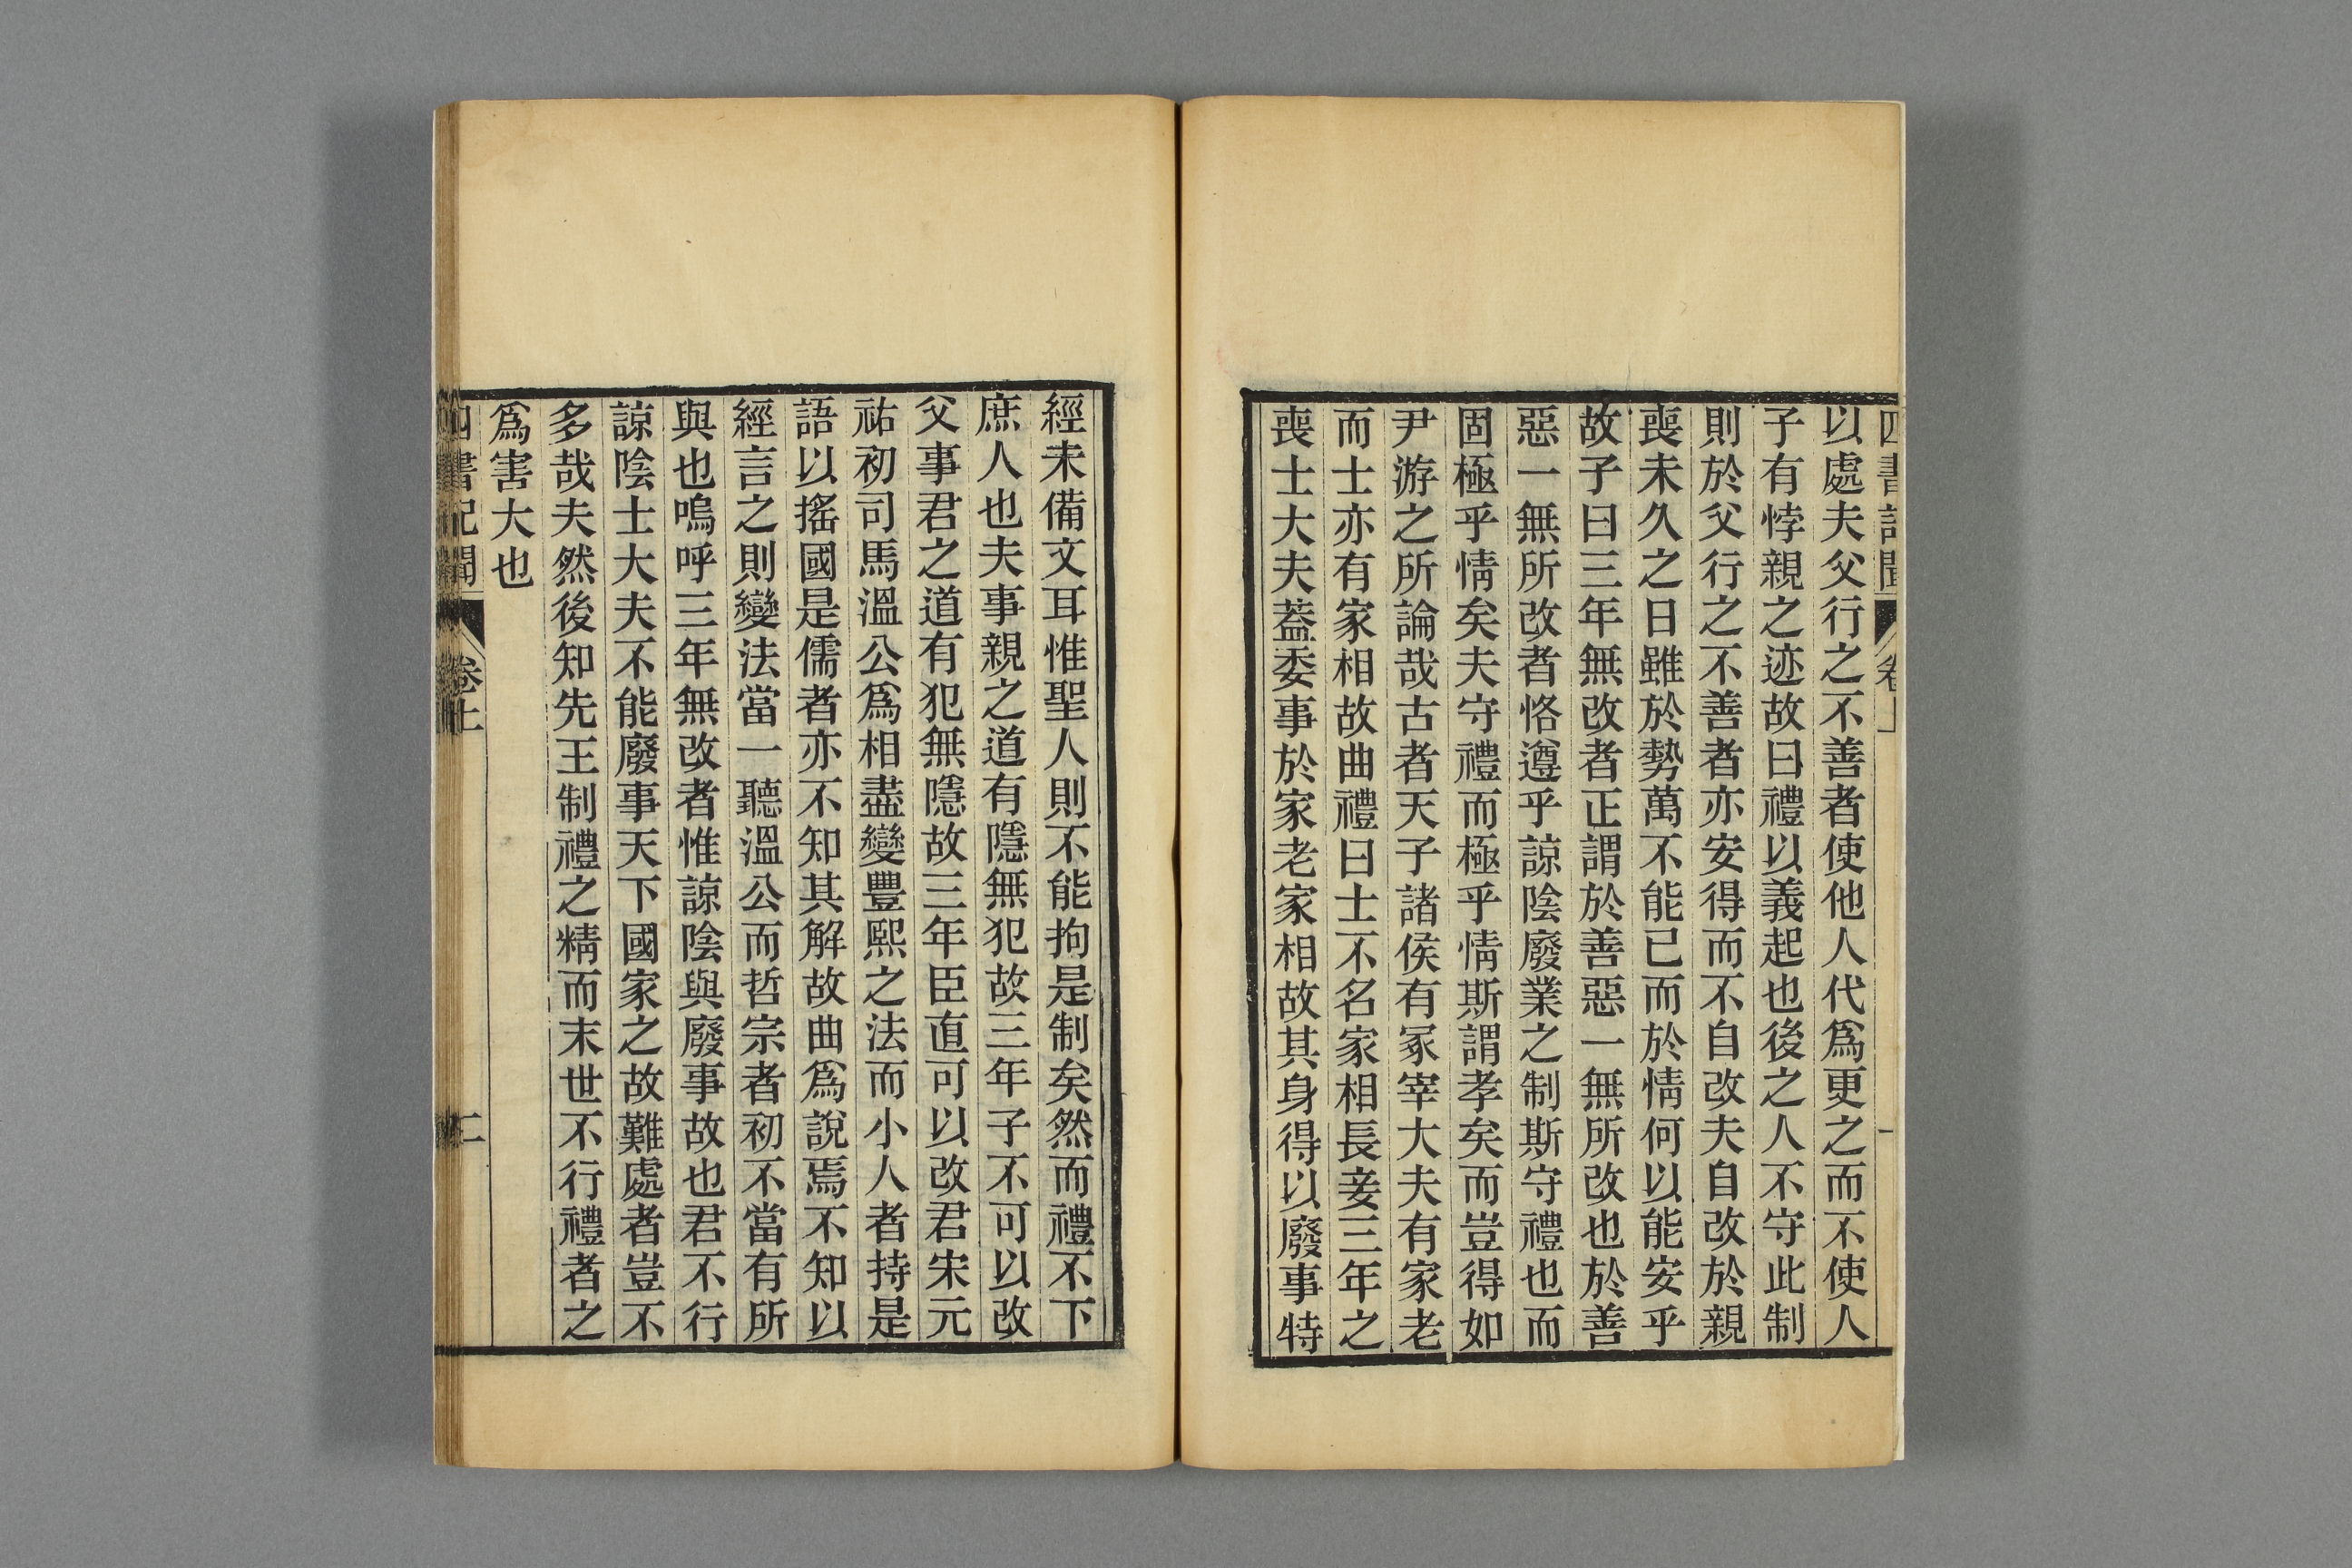 四書記聞 卷上 一
以處夫父行之不善者使他人代爲更之而不使人
子有悖親之迹故曰禮以義起也後之人不守此制
則於父行之不善者亦安得而不自改夫自改於親
喪未久之日雖於勢萬不能已而於情何以能安乎
故子曰三年無改者正謂於善惡一無所改也於善
惡一無所改者恪遵乎諒陰廢業之制斯守禮也而
固極乎情矣夫守禮而極乎情斯謂孝矣而豈得如
尹游之所論哉古者天子諸侯有冢宰大夫有家老
而士亦有家相故曲禮曰士不名家相長妾三年之
喪士大夫葢委事於家老家相故其身得以廢事特
經未備文耳惟聖人則不能拘是制矣然而禮不下
庶人也夫事親之道有隱無犯故三年子不可以改
父事君之道有犯無隱故三年臣直可以改君宋元
祐初司馬溫公爲相盡變豐熙之法而小人者持是
語以搖國是儒者亦不知其解故曲爲說焉不知以
經言之則變法當一聽溫公而哲宗者初不當有所
與也嗚呼三年無改者惟諒陰與廢事故也君不行
諒陰士大夫不能廢事天下國家之故難處者豈不
多哉夫然後知先王制禮之精而末世不行禮者之
爲害大也
四書記聞 卷上 二